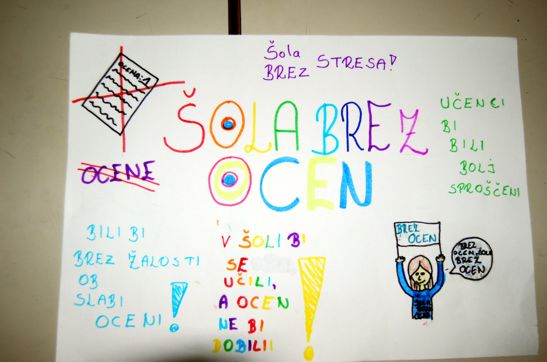 OCENA:1
Šola
BREZ STRESA!
ŠOLA BREZ
OCEN
OCENE
UČENCI
BI
BILI
BOLJ
SPROŠČENI
BILI BI
BREZ ŽALOSTI
OB
SLABI
OCENI!
V ŠOLI BI
SE
UČILI,
A OCEN
NE BI
DOBILI!
BREZ
OCEN
BREZ
OCEN, ŠOLA
BREZ
OCEN